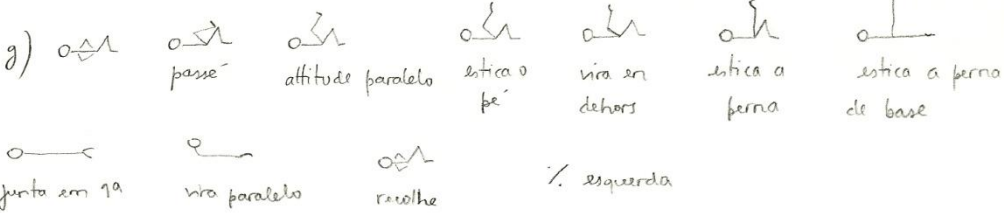 g)
passé
attitude paralelo
estica o pé
vira en dehors
estica a perna
estica a perna de base
junta em 1ª
vira paralelo
recolhe
٪ esquerda